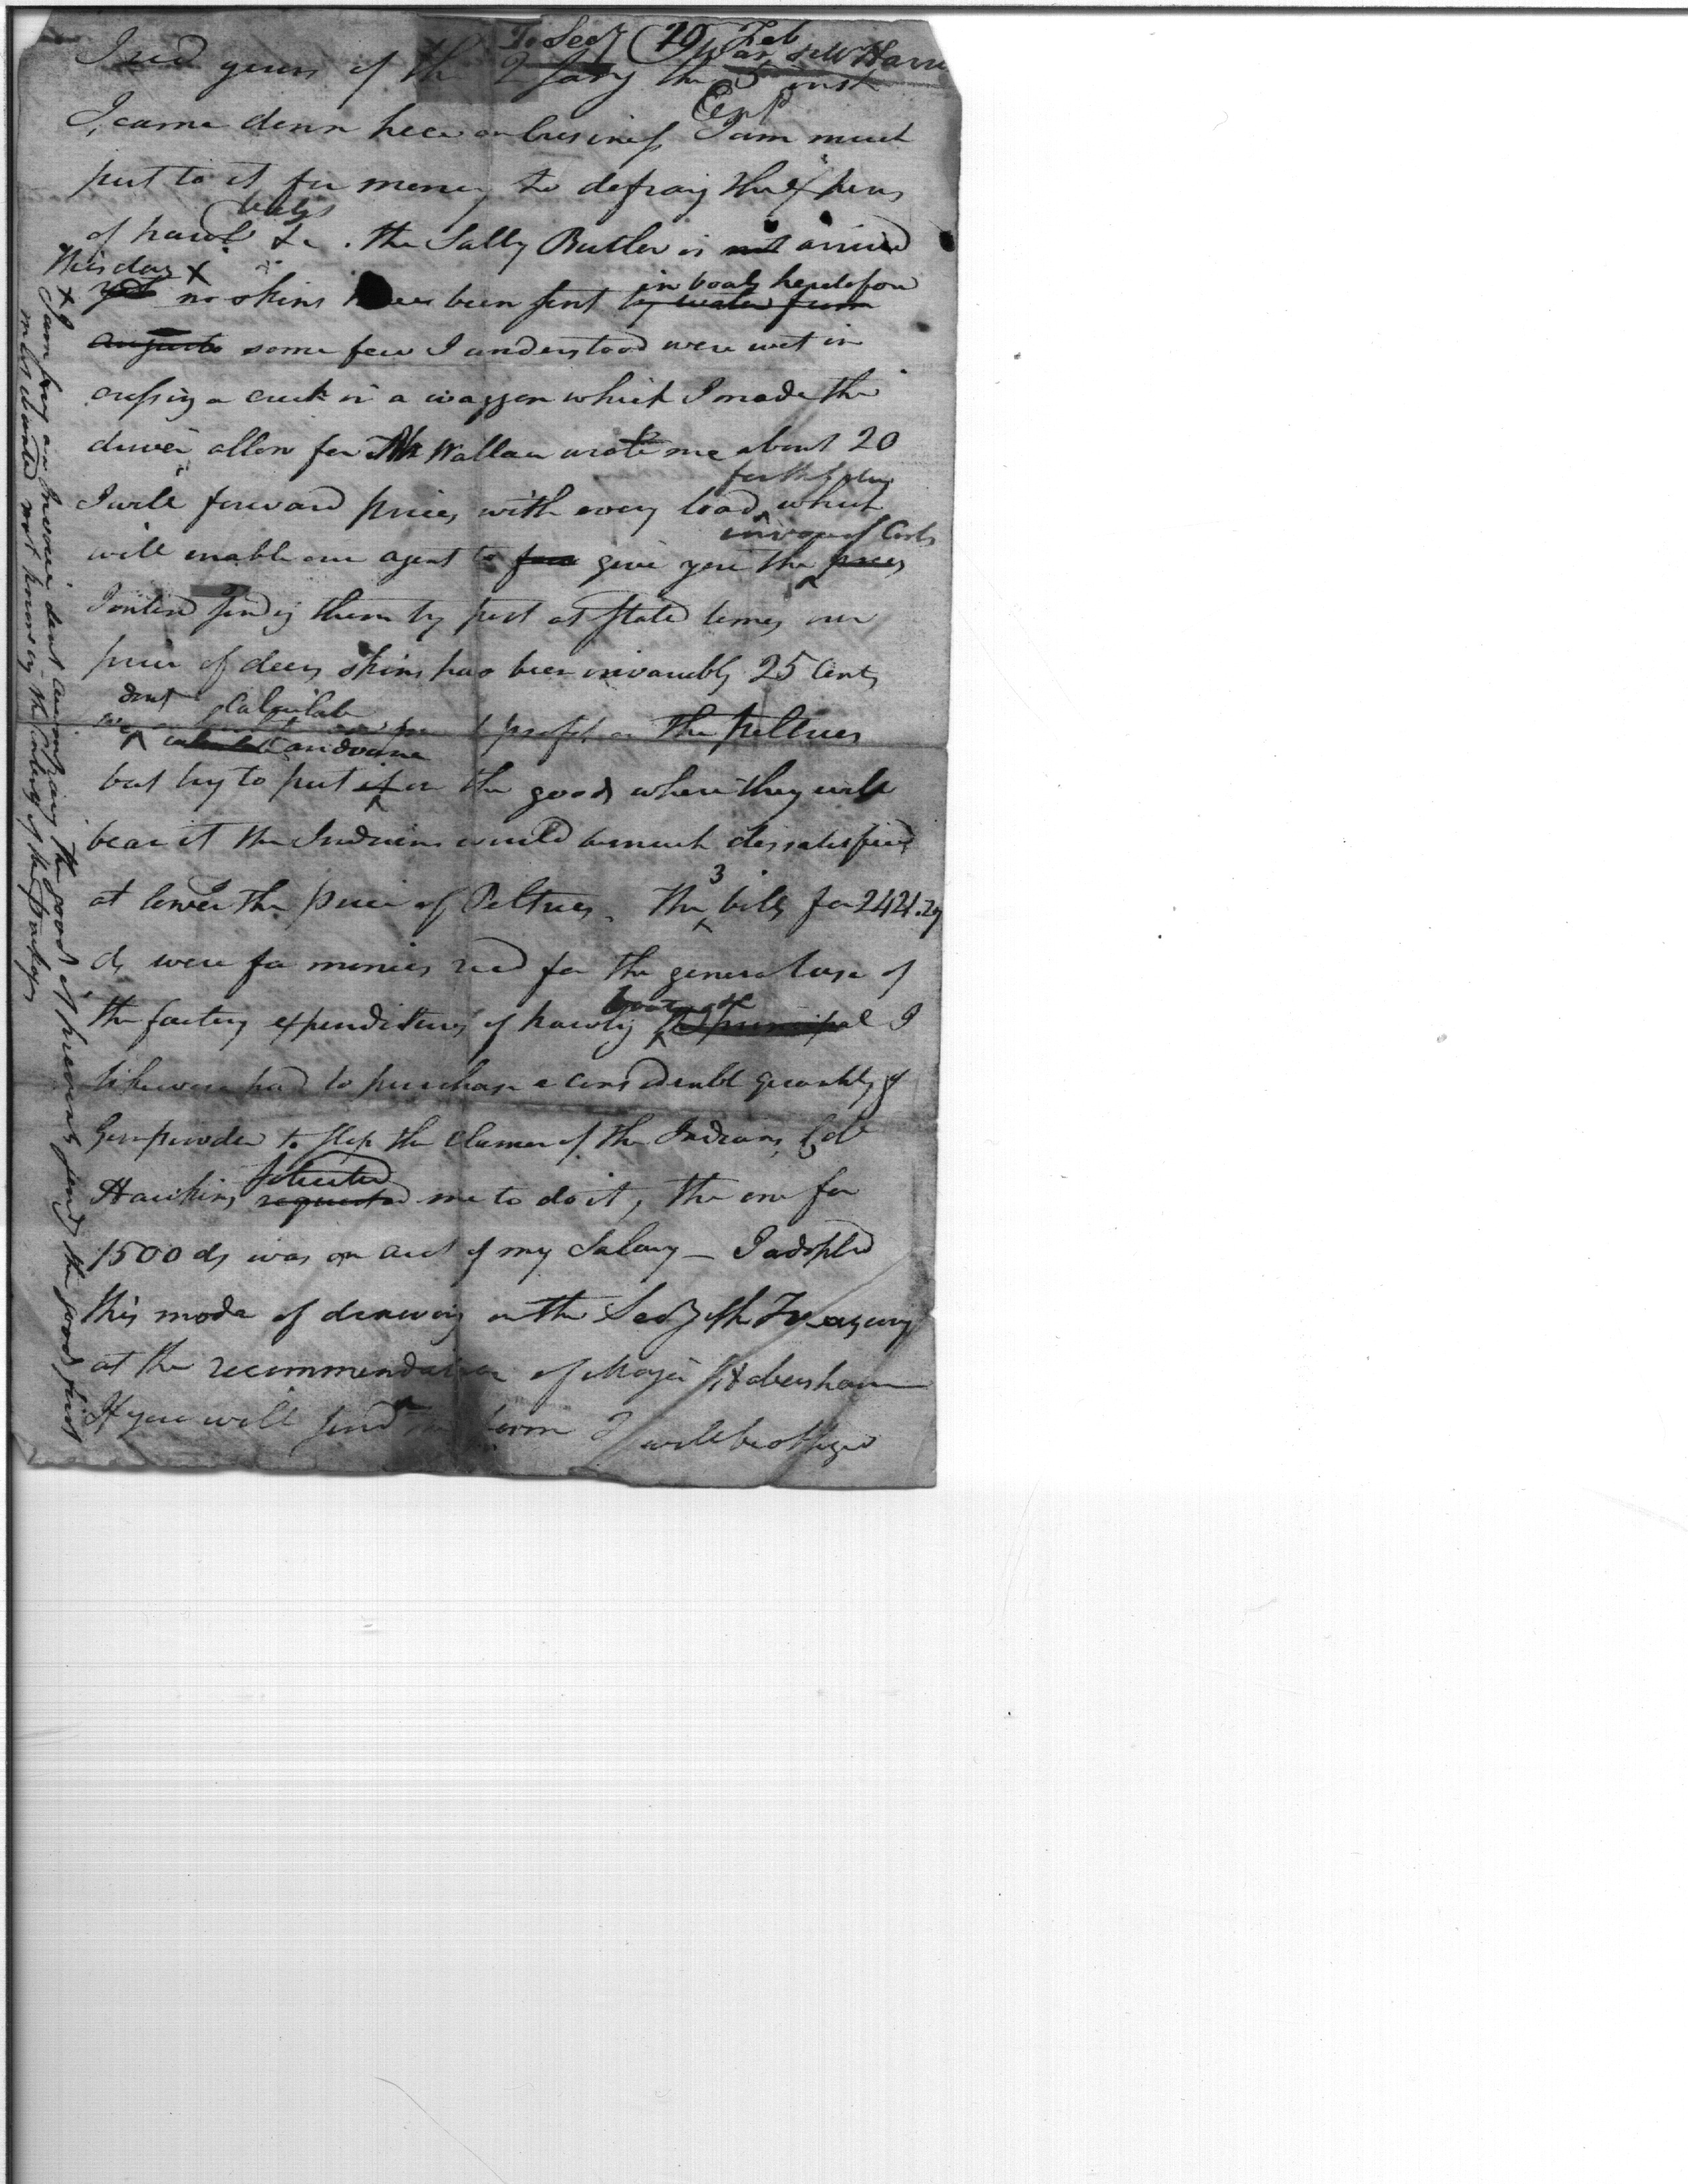 To Secy War 20 Feb & W Harris
I recd yours of the 2 Jany the 5 inst
I came down here on business I am much
put to it for money to defray the expens
of hawl & c. the Sally Butler is not arrived
this day X
yet no skins have been sent by water from
in boats heretofore
Augusta some few I understood were wet in
crossing a creek in a waggon which I made the
driver allow for Mr Wallace wrote me about 20
I will forward prices with every load which
will enable our agent to give you the prices
invoice of Costs
I intend sendg them by post at stated times our
price of deer skins has been invariably 25 Cents
we dont calculate profit on the peltries
but try to put it on the goods where they will
bear it the Indians would be much dissatisfied
at lower the price of Peltries. The 3 bills for 2421.29
ds were for monies recd for the general use of
the factory expenditures of hawlg boats &c principal I
likewise had to purchase a considerable quantity of
Gunpowder to stop the clamor of the Indians, Col
Hawkins requested solicited me to do it, the one for
1500 ds was on acct of my Salary — I adopted
this mode of drawing on the Secy of the Treasury
at the recommendation of Major Habersham
If you will send a form I will be obliged
X I am sorry an Invoice dont accompany the goods it prevents sendg the goods first
most wanted not knowing the Contents of the packages